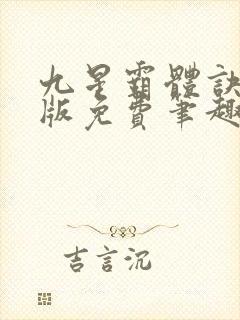 九星霸體訣
版免費筆趣
吉言沉